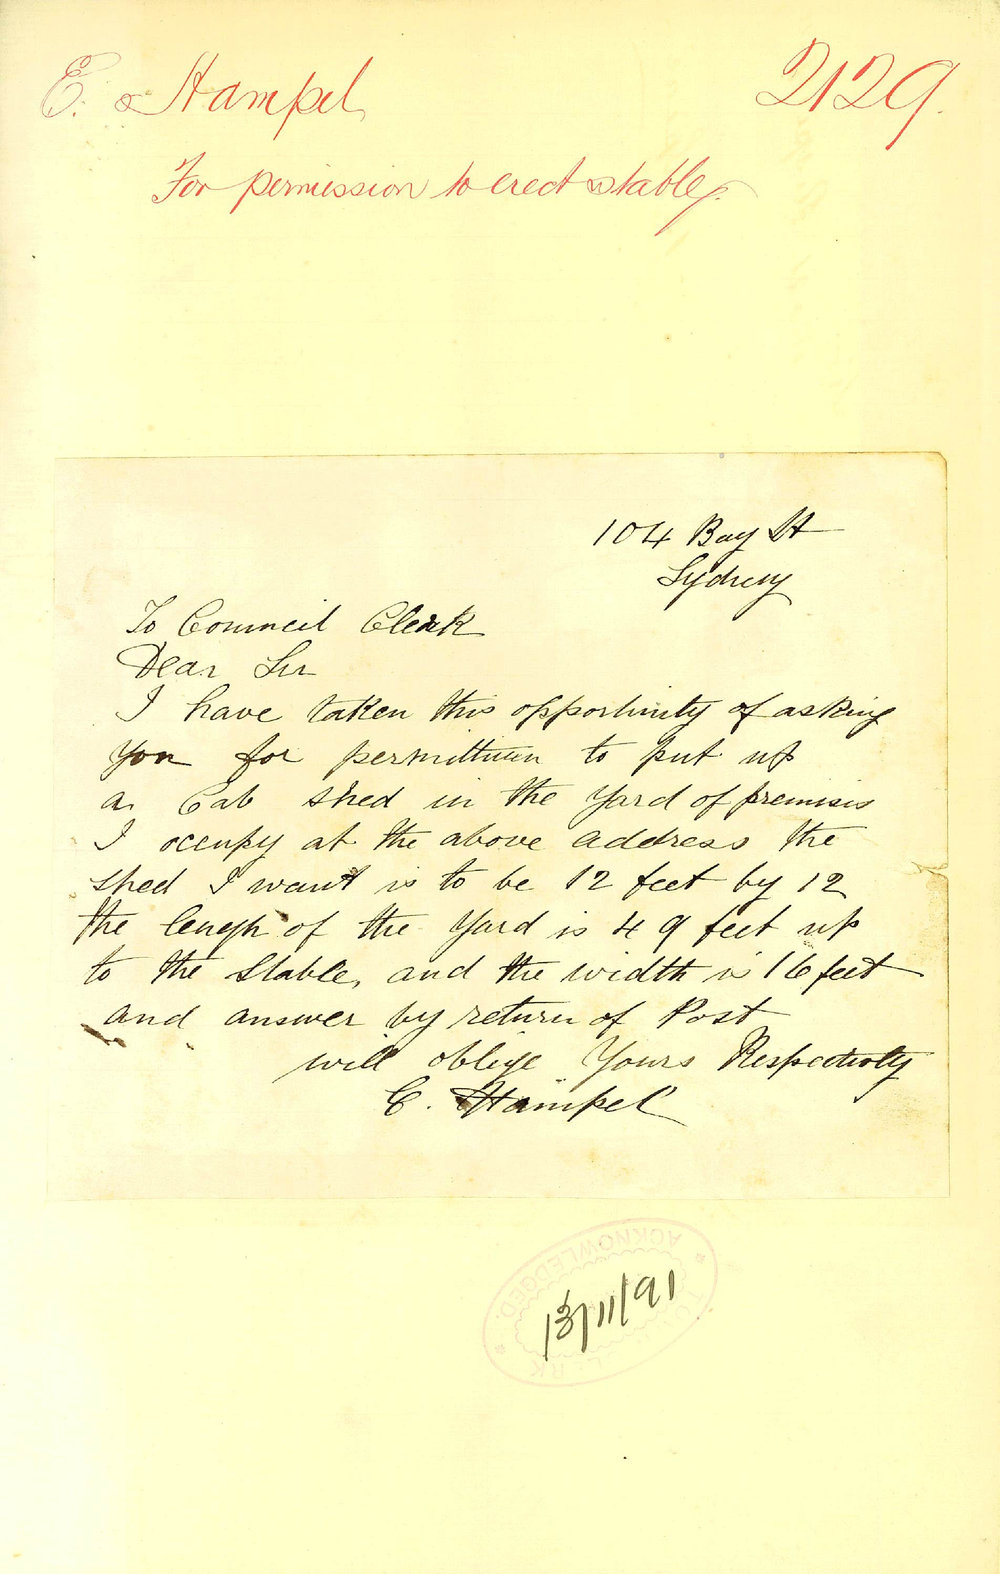 E. Hampel 2129.
For permission to erect stable.
104 Bay St
Sydney
To Council Clerk
Dear Sir
I have taken this opportunity of asking
you for permittion to put up
a Cab shed in the yard of premises
I ocupy at the above address the
shed I want is to be 12 feet by 12
the lengh of the yard is 49 feet up
to the stable, and the width is 16 feet
and answer by return of Post
will oblige Yours Respectivly
E. Hampel
ACKNOWLEDGED.
13/11/91
TOWN CLERK